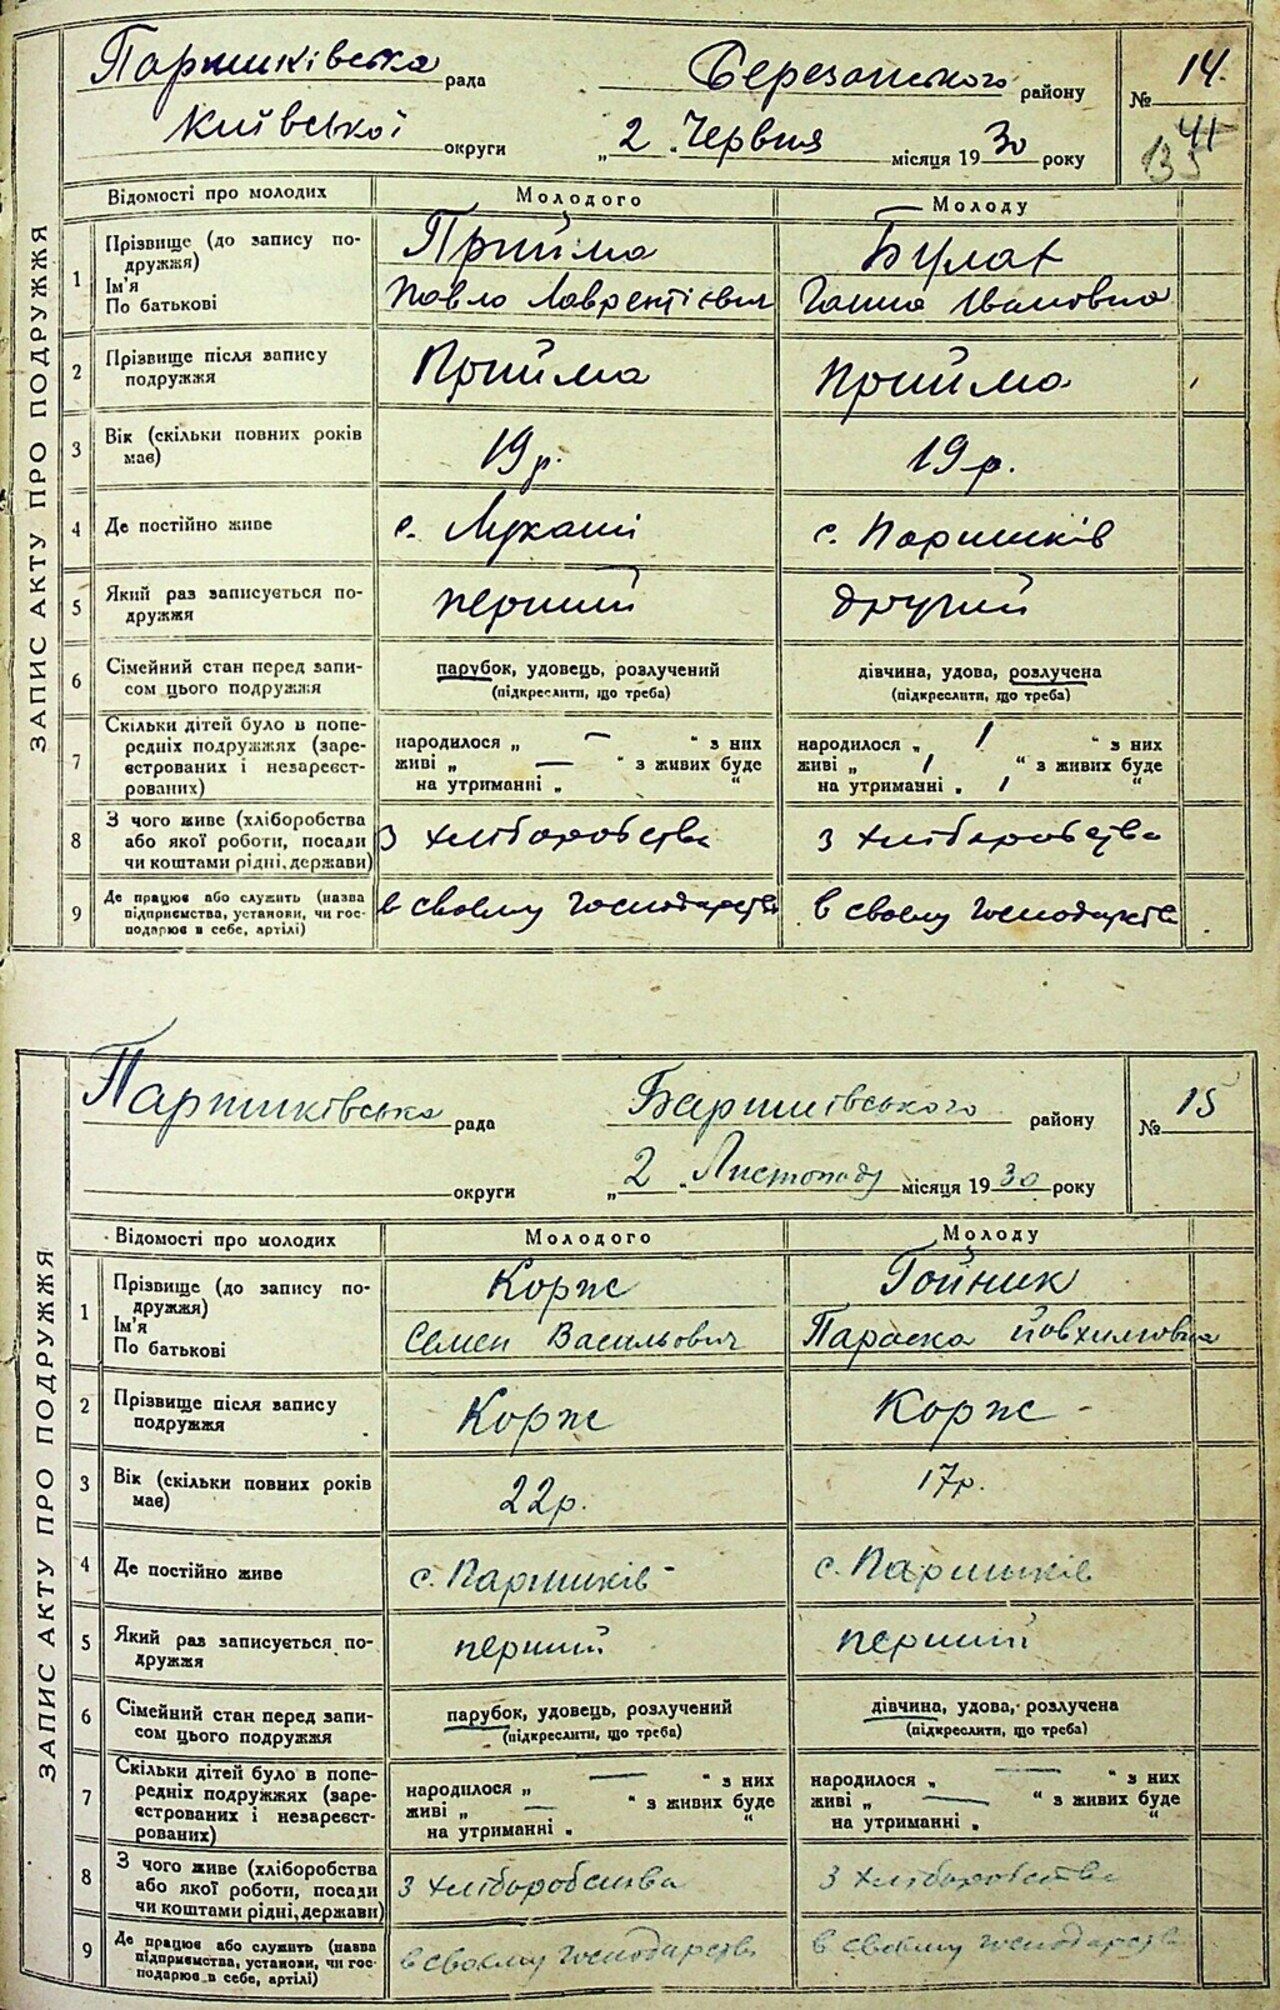 ЗАПИС АКТУ ПРО ПОДРУЖЖЯ
Паришківська рада Березанського району № 14.
Київської округи „ 2 „ Червня місяця 19 30 року
Відомості про молодих Молодого Молоду
1 Прізвище (до запису по-дружжя) Прийма Булах
Ім'я
По батькові Павло Лаврентієвич Ганна Івановна
2 Прізвище після запису подружжя Прийма Прийма
3 Вік (скільки повних років має) 19 р. 19 р.
4 Де постійно живе с. Лукаші с. Паришків
5 Який раз записується по-дружжя перший другий
6 Сімейний стан перед запи-сом цього подружжя парубок, удовець, розлучений (підкреслити, що треба) дівчина, удова, розлучена (підкреслити, що треба)
7 Скільки дітей було в попе-редніх подружжях (заре-єстрованих і незареєст-рованих) народилося „ — “ з них живі „ — “ з живих буде на утриманні „ “ народилося „ 1 “ з них живі „ 1 “ з живих буде на утриманні „ 1 “
8 З чого живе (хліборобства або якої роботи, посади чи коштами рідні, держави) З хліборобства З хліборобства
9 Де працює або служить (назва підприємства, установи, чи гос-подарює в себе, артілі) в своєму господарстві в своєму господарстві
ЗАПИС АКТУ ПРО ПОДРУЖЖЯ
Паришківська рада Баришівського району № 15
округи „ 2 „ Листопаду місяця 19 30 року
Відомості про молодих Молодого Молоду
1 Прізвище (до запису по-дружжя) Корж Гойник
Ім'я
По батькові Семен Васильович Параска Йовхимовна
2 Прізвище після запису подружжя Корж Корж
3 Вік (скільки повних років має) 22 р. 17 р.
4 Де постійно живе с. Паришків с. Паришків
5 Який раз записується по-дружжя перший перший
6 Сімейний стан перед запи-сом цього подружжя парубок, удовець, розлучений (підкреслити, що треба) дівчина, удова, розлучена (підкреслити, що треба)
7 Скільки дітей було в попе-редніх подружжях (заре-єстрованих і незареєст-рованих) народилося „ — “ з них живі „ — “ з живих буде на утриманні „ “ народилося „ — “ з них живі „ — “ з живих буде на утриманні „ “
8 З чого живе (хліборобства або якої роботи, посади чи коштами рідні, держави) З хліборобства З хліборобства
9 Де працює або служить (назва підприємства, установи, чи гос-подарює в себе, артілі) в своєму господарстві в своєму господарстві